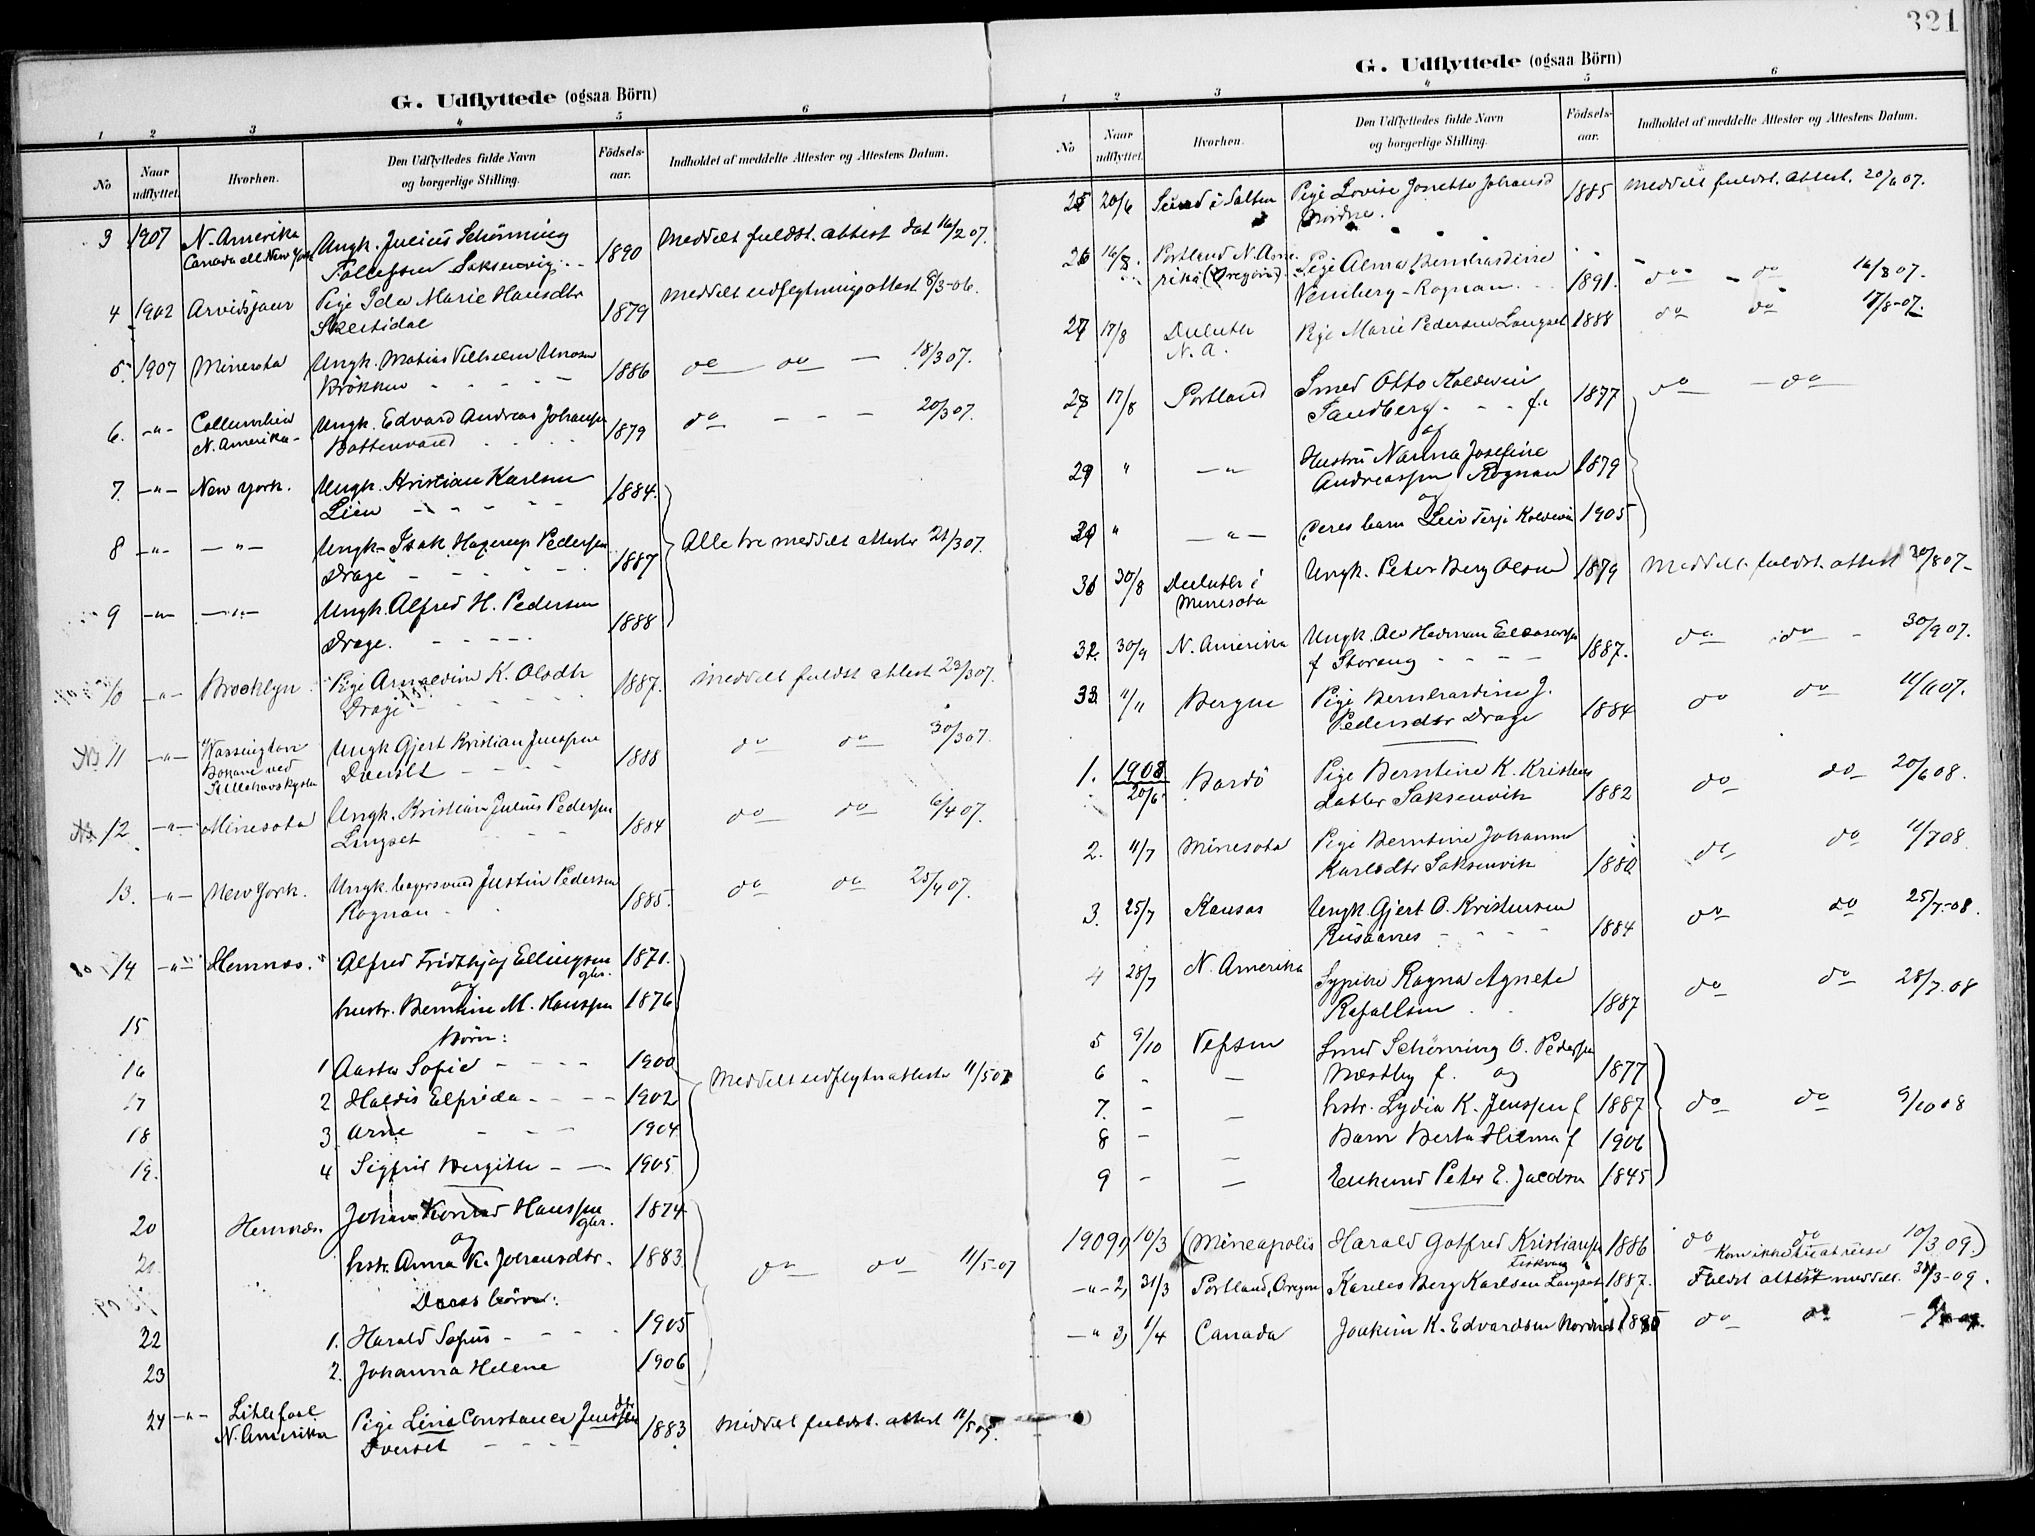 G. Udflyttede (ogsaa Börn)
1 2 3 4 5 6
No
Naar udflyttet.
Hvorhen.
Den Udflyttedes fulde Navn og borgerlige Stilling.
Födsels-aar.
Indholdet af meddelte Attester og Attestens Datum.
3 1907 N. Amerika Ungk. Julius Schönning 1890 Meddelt fuldst. attest dat 16/2 07.
Canada ell. New York Tollefsen Saksenvig
4 1902 Arvidsjaur Pige Ida Marie Hansdtr 1879 Meddelt udflytningsattest 8/3-06.
5. 1907 Minesota Ungk. Matias Vilhelm 1886 do do — 18/3 07.
6. -"- N. Amerika- Ungk. Edvard Andreas Johansen 1879 do - - - 20/3 07.
Bottenvand
7. -"- New York. Ungk. Kristian Karlsen 1884.
Lien
8 -"- -"- Ungk. Isak Hagerup Pedersen 1887 Alle tre meddelt attester 21/3 07.
Drage
9 -"- -"- Ungk. Alfred H. Pedersen 1888
Drage.
10 -"- Brooklyn Pige K. Olsdtr 1887. Meddelt fuldst attest 23/3 07.
Drage
11 -"- Wassington Ungk Gjert Kristian Jenssen 1888 do do 30/3 07.
12 -"- Minesota Ungk. Kristian Julius Pedersen 1884 do do 6/4 07.
13. -"- New York. Ungk. Justin Pedersen 1885. do do 25/4 07.
Rognan
14 -"- Hemnes. Alfred Fridthjof Ellingsen 1871.
gbr.
og
15 hustr. Berntine M. Hanssen 1876
Börn:
16 1 Aasta Sofie 1900
17 2 Haldis Elfrida 1902 Meddelt udflytn attester 11/5 07
18 3 Arne 1904
19. 4 Sigfrid Bergithe 1905
20 Hemnes Johan Konrad Hanssen 1874
gbr.
og
21. hstr. Anna K. Johansdtr. 1883 do do 11/5-07
Deres börn:
22 1. Harald Sofus 1905
23 2. Johanna Helene 1906
24 -"- N. Amerika Pige Lina Constance Jenssen dtr 1883 Meddelt fuldst. attest 11/5 07.
Dverset
321
G. Udflyttede (ogsaa Börn)
1 2 3 4 5 6
No
Naar udflyttet.
Hvorhen.
Den Udflyttedes fulde Navn og borgerlige Stilling.
Födsels-aar.
Indholdet af meddelte Attester og Attestens Datum.
25 20/6 i Salten Pige Lovise Jonette Johansd 1885 Meddelt fuldst. attest. 20/6 07.
26 16/8. Portland N. Ame- Pige Alma Bernhardine
rika (Oregon). Venberg - Rognan 1891. do do 16/8 07.
27 17/8 Duluth Pige Marie Pedersen Langset 1888 do do 17/8-07.
N. A.
28 17/8 Portland Smed Otto Koldevin 1877 do — do
Sandberg f.
og
29 " -"- Hustru Nanna Josefine
Andreassen Rognan 1879
og
30 " -"- deres barn Leiv Terje Koldevin 1905
31 30/8 Duluth i Ungk. Peter Berg Olsen 1879 Meddelt fuldst. attest 30/8 07-
Minesota
32. 30/9 N. Amerika Ungk. Herman 1887. do do 30/9 07.
f Storeng
33 11/11 Bergen Pige Bernhardine J. 1884 do do 11/11 07.
Pedersdtr Drage
1. 1908 20/6 Bardö Pige Berntine K. Kristens
datter Saksenvik 1882 do do 20/6 08.
2. 11/7 Minesota Pige Berntine Johanna
Karlsdtr Saksenvik 1880 do do 11/7 08
3. 25/7 Kansas Ungk. Gjert O. Kristensen 1884 do do 25/7-08.
Rusaanes
4 28/7 N. Amerika Ragna Agnete
Rafaelsen 1887 do do 28/7.08
5 9/10 Vefsen Smed Schönning O. Pedersen
6 - — Næstby f. og 1877
7. - — hstr. Lydia K. Jenssen f 1887 do do 9/10 08
8 - — Barn Berta Hilma f 1906
9 - — Enkemd Peter E. Jacobsen 1845
1909 1, 10/3 (Mineapolis Harald Gotfred Kristiansen 1886 do do 10/3 09.)
Kom ikke til at reise
-"- 2, 31/3 Portland, Oregon Karles Berg Karlsen Langset 1887. Fuldst attest meddelt. 31/3-09.
-"- 3, 1/4 Canada Joakim K. Edvardsen do do